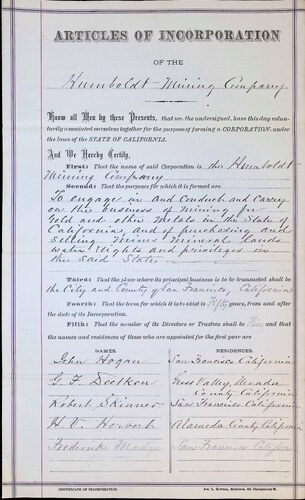 ARTICLES OF INCORPORATION
OF THE
Humboldt Mining Company
Know all Men by these Presents, that we, the undersigned, have this day volun-
tarily associated ourselves together for the purpose of forming a CORPORATION, under
the laws of the STATE OF CALIFORNIA.
And We Hereby Certify,
First: That the name of said Corporation is the Humboldt
Mining Company
Second: That the purposes for which it is formed are
To engage in and Conduct and Carry
on the business of Mining for
Gold and other Metals in the State of
California, and of purchasing and
selling Mines Mineral lands
water Rights and privileges in
the Said State
Third: That the place where its principal business is to be transacted shall be
the City and County of San Francisco, California
Fourth: That the term for which it is to exist is Fifty years, from and after
the date of its Incorporation.
Fifth: That the number of its Directors or Trustees shall be Five and that
the names and residences of those who are appointed for the first year are
NAMES. RESIDENCES.
John Hogan San Francisco California
G. F. Grass Valley, Nevada
County California
Robert Skinner San Francisco California
H. Alameda County California
Frederick San Francisco
CERTIFICATE OF INCORPORATION.